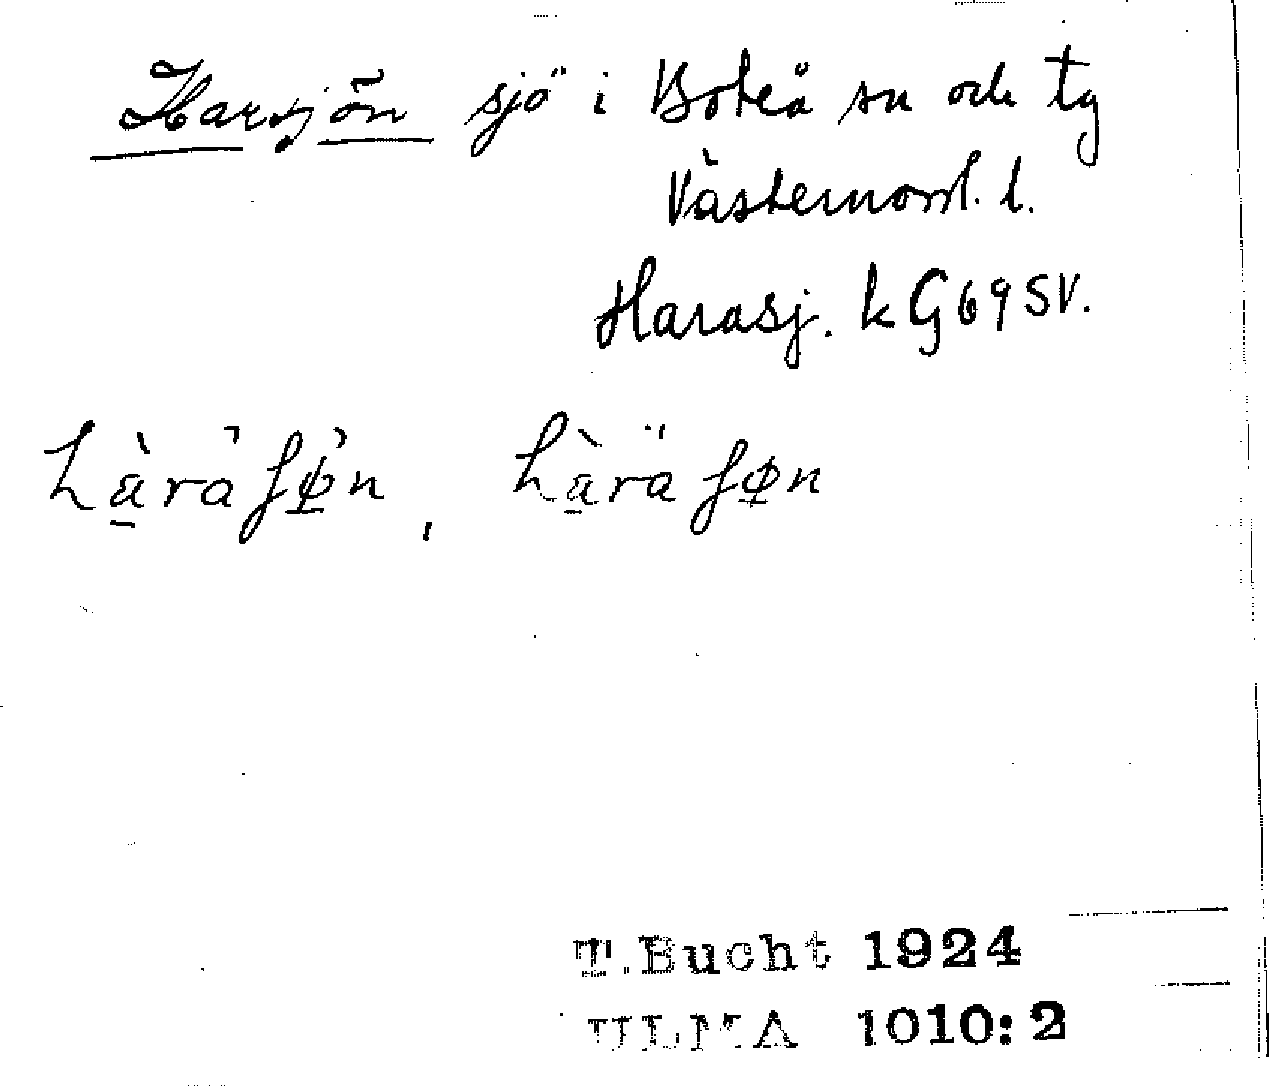 Harsjön sjö i Boteå sn och tg
Västernorrl. l.
Harasj. k G69SV.
hàrაʃø̀n, hàräʃøn
T.Bucht 1924
ULMA 1010:2